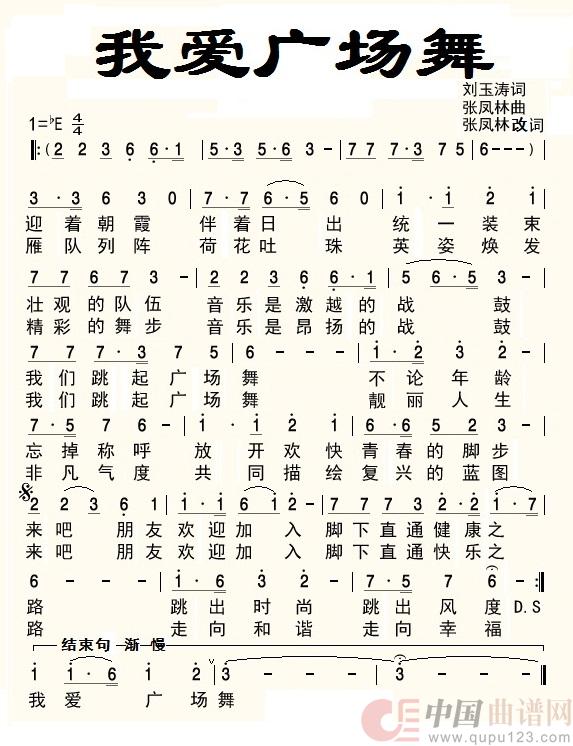 我爱广场舞
刘玉涛词
张凤林曲
1=♭E 4/4 张凤林改词
‖:(2 2 3 6 6·1 | 5·3 5·6 3 - | 7 7 7·3 7 5 | 6 - - -)|
3·3 6 3 0 | 7·7 6·5 6 0 | 1·1 2 1 |
迎着朝霞 伴着日出 统一装束
雁队列阵 荷花吐珠 英姿焕发
7 7 6 7 3 - | 2 2 3 6 6·1 | 5 6·5 3 - |
壮观的队伍 音乐是激越的战鼓
精彩的舞步 音乐是昂扬的战鼓
7 7 7·3 7 5 | 6 - - - | 1·2 3 2 - |
我们跳起广场舞 不论年龄
我们跳起广场舞 靓丽人生
7·5 6 7 - | 1·1 2 6 6·5 2 3 - |
忘掉称呼 放开欢快青春的脚步
非凡气度 共同描绘复兴的蓝图
2 2 3 6 1 | 7 7 6 5 6 1 | 7 7 7 3 2 2 | 1·7
来吧 朋友欢迎加入 脚下直通健康之
来吧 朋友欢迎加入 脚下直通快乐之
6 - - - | 1·6 3 2 - | 7·5 6 7 - :‖
路 跳出时尚 跳出风度 D.S
路 走向和谐 走向幸福
结束句 渐 慢
1 1·6 1 2 - ∨ | 3 - - - | 3 - - - ‖
我爱 广场舞
中国曲谱网
www.qupu123.com